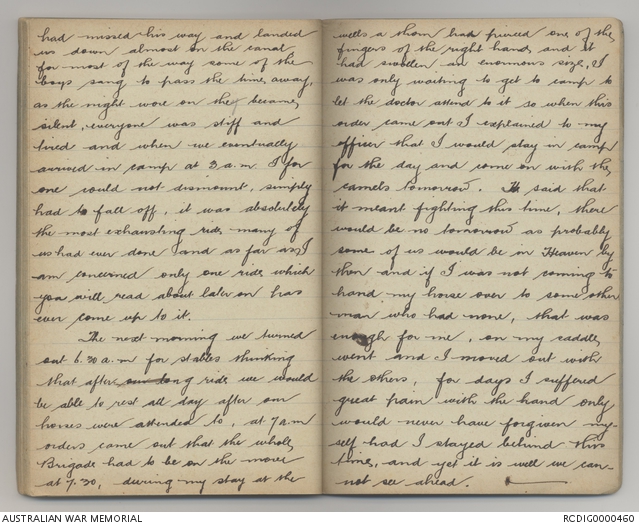 had missed his way and landed
us down almost on the canal
for most of the way some of the
boys sang to pass the time away,
as the night wore on they became
silent, everyone was stiff and
tired and when we eventually
arrived in camp at 3 a.m I for
one could not dismount, simply
had to fall off, it was absolutely
the most exhausting ride many of
us had ever done and as far as I
am concerned only one ride which
you will read about later on has
ever come up to it.
The next morning we turned
out 6.30 a.m for stables thinking
that after our long ride we would
be able to rest all day after our
horses were attended to, at 7 am
orders came out that the whole
Brigade had to be on the move
at 7.30, during my stay at the
wells a thorn had pierced one of the
fingers of the right hand and it
had swollen an enormous size, I
was only waiting to get to camp to
let the doctor attend to it so when this
order came out I explained to my
officer that I would stay in camp
for the day and come on with the
camels tomorrow. He said that
it meant fighting this time, there
would be no tomorrow as probably
some of us would be in Heaven by
then and if I was not coming to
hand my horse over to some other
man who had none, that was
enough for me, on my saddle
went and I moved out with
the others, for days I suffered
great pain with the hand only
would never have forgiven my-
self had I stayed behind this
time, and yet it is well we can-
not see ahead.
AUSTRALIAN WAR MEMORIAL
RCDIG0000460